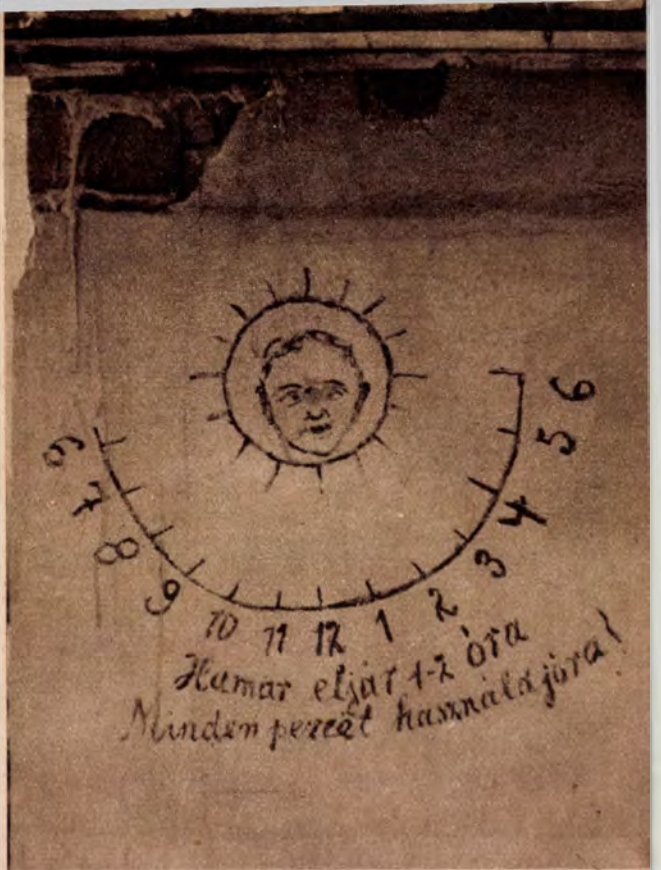 6 7 8 9 10 11 12 1 2 3 4 5 6
Hamar eljár 1-2 óra
Minden percét használd jóra!